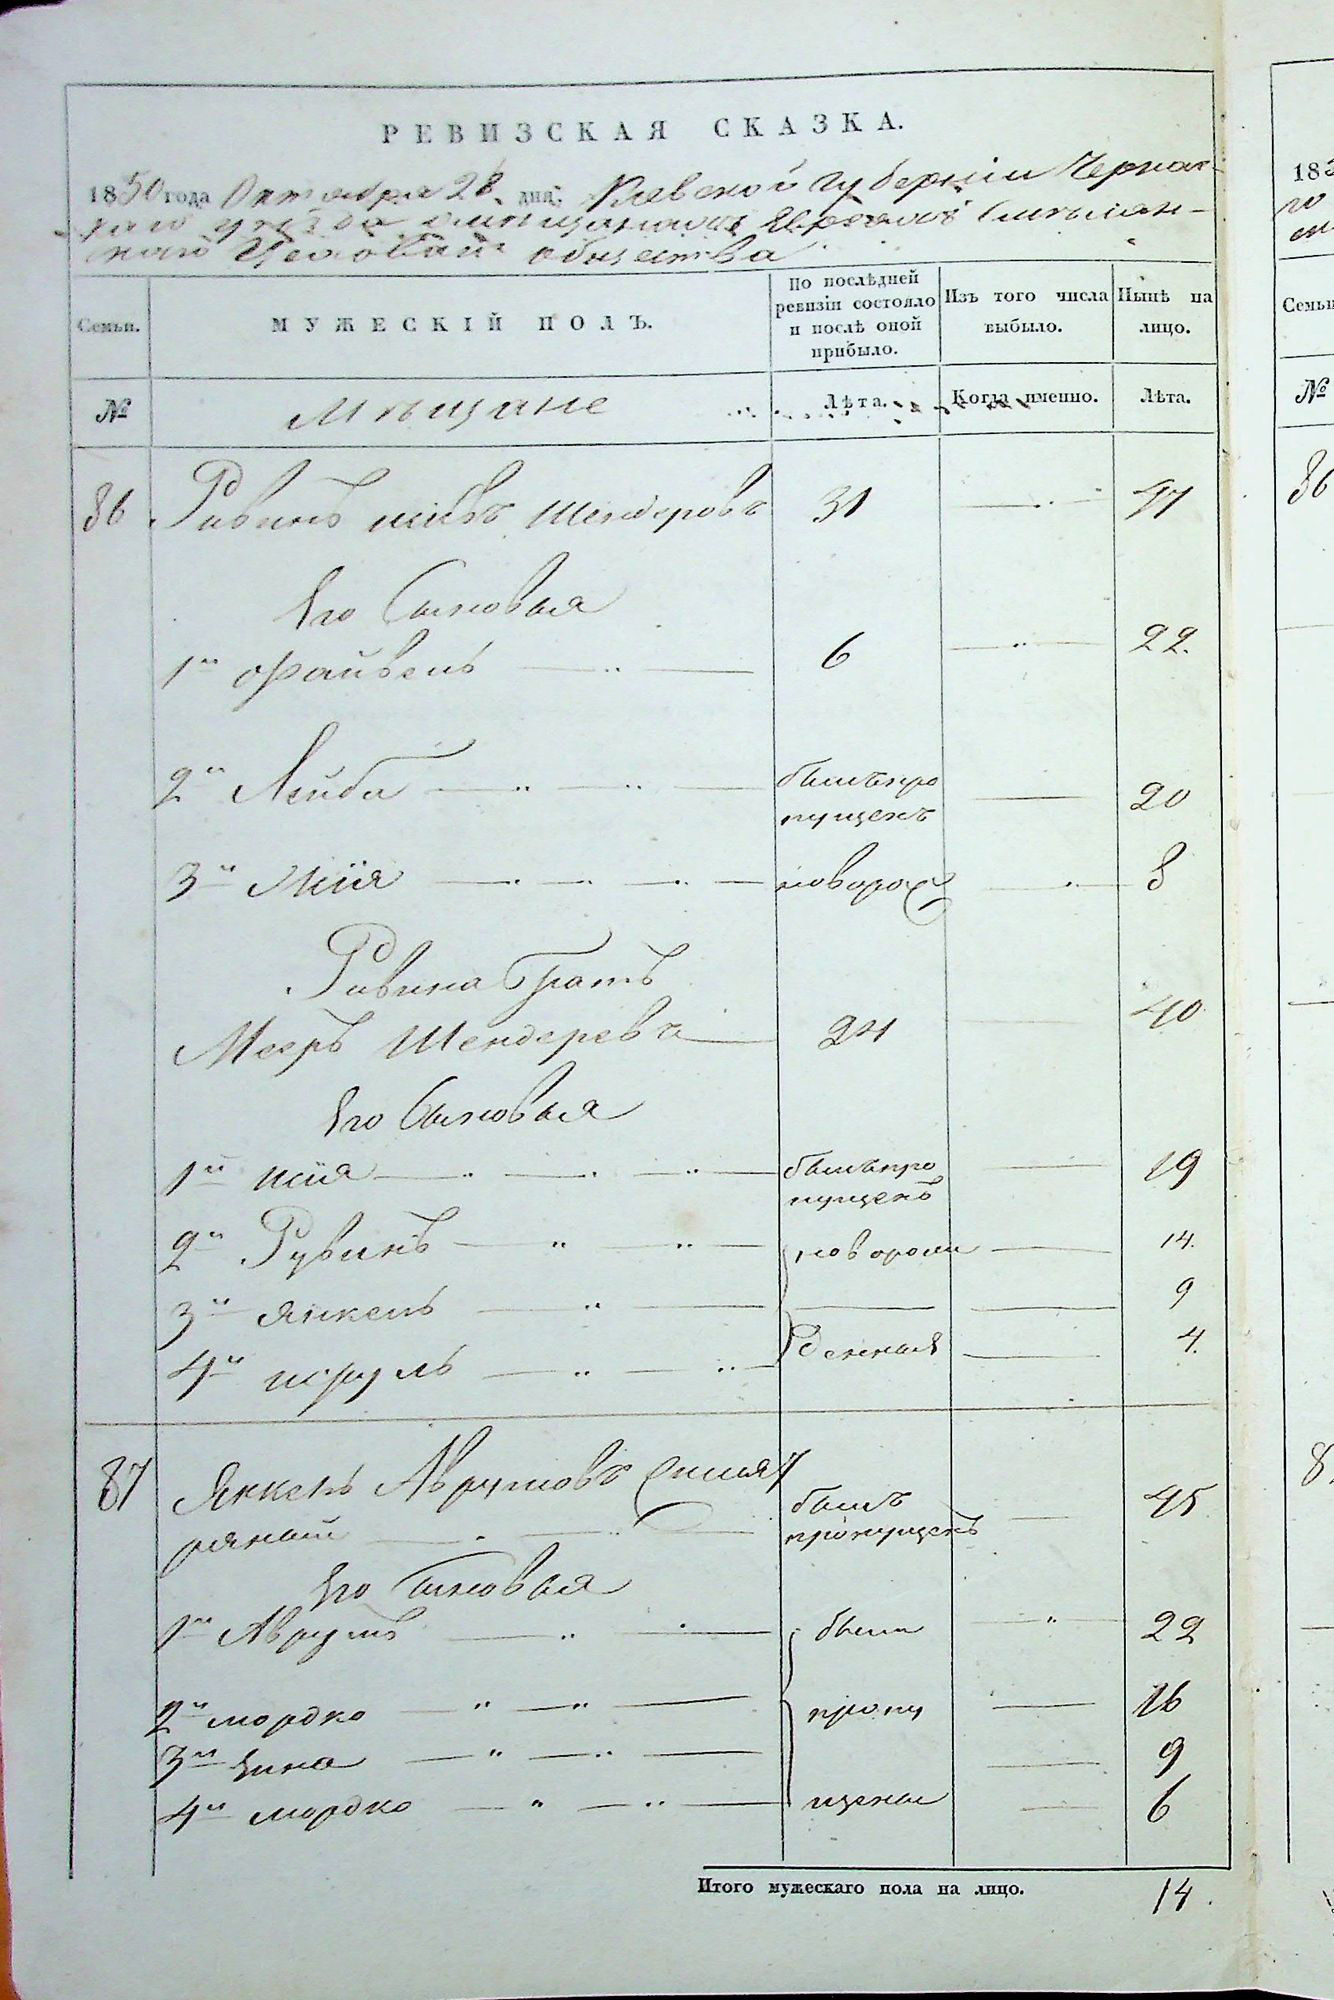 РЕВИЗСКАЯ СКАЗКА.
1850 года Октября 28 дня. Киевской губерніи Черкас-
каго уѣзда о мѣщанахъ Евреяхъ Смѣлян-
скаго общества
Семьи.
МУЖЕСКІЙ ПОЛЪ.
По послѣдней ревизіи состояло и послѣ оной прибыло.
Изъ того числа выбыло.
Нынѣ на лицо.
№
Мѣщане
Лѣта.
Когда именно.
Лѣта.
86 Ривинъ Шендеровъ 31 — 47
Его Сыновья
1й Файвель — 6 — 22.
2й Лейба — былъ пропущенъ — 20
3й — новорож — 8
Ривина братъ
Мееръ Шендеровъ — 24 — 40
Его Сыновья
1й — былъ пропущенъ — 19
2й Рувинъ — новорож — 14.
3й Янкель — — 9
4й Исруль — денныя — 4.
87 Янкель Аврумовъ
былъ пропущенъ — 45
Его Сыновья
1й Аврумъ — были — 22
2й Мордко — пропу — 16
3й — 9
4й Мордко — щены — 6
Итого мужескаго пола на лицо. 14.
183
Семьи
№
86